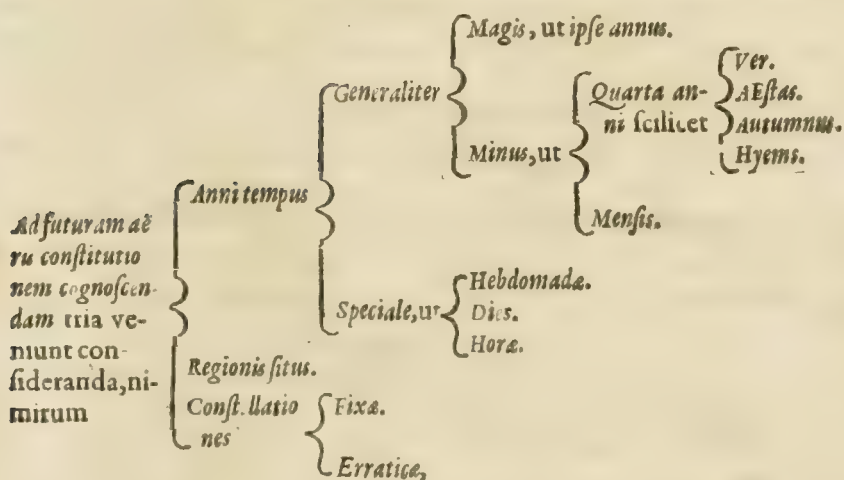 Ad futuram aë
ris constitutio
nem cognoscen-
dam tria ve-
niunt con-
sideranda, ni-
mirum
Anni tempus
Generaliter
Magis, ut ipse annus.
Minus, ut
Quarta an-
ni scilicet
Ver.
AEstas.
Autumnus.
Hyems.
Mensis.
Speciale, ut
Hebdomadæ.
Dies.
Horæ.
Regionis situs.
Constellatio
nes
Fixæ.
Erraticæ,